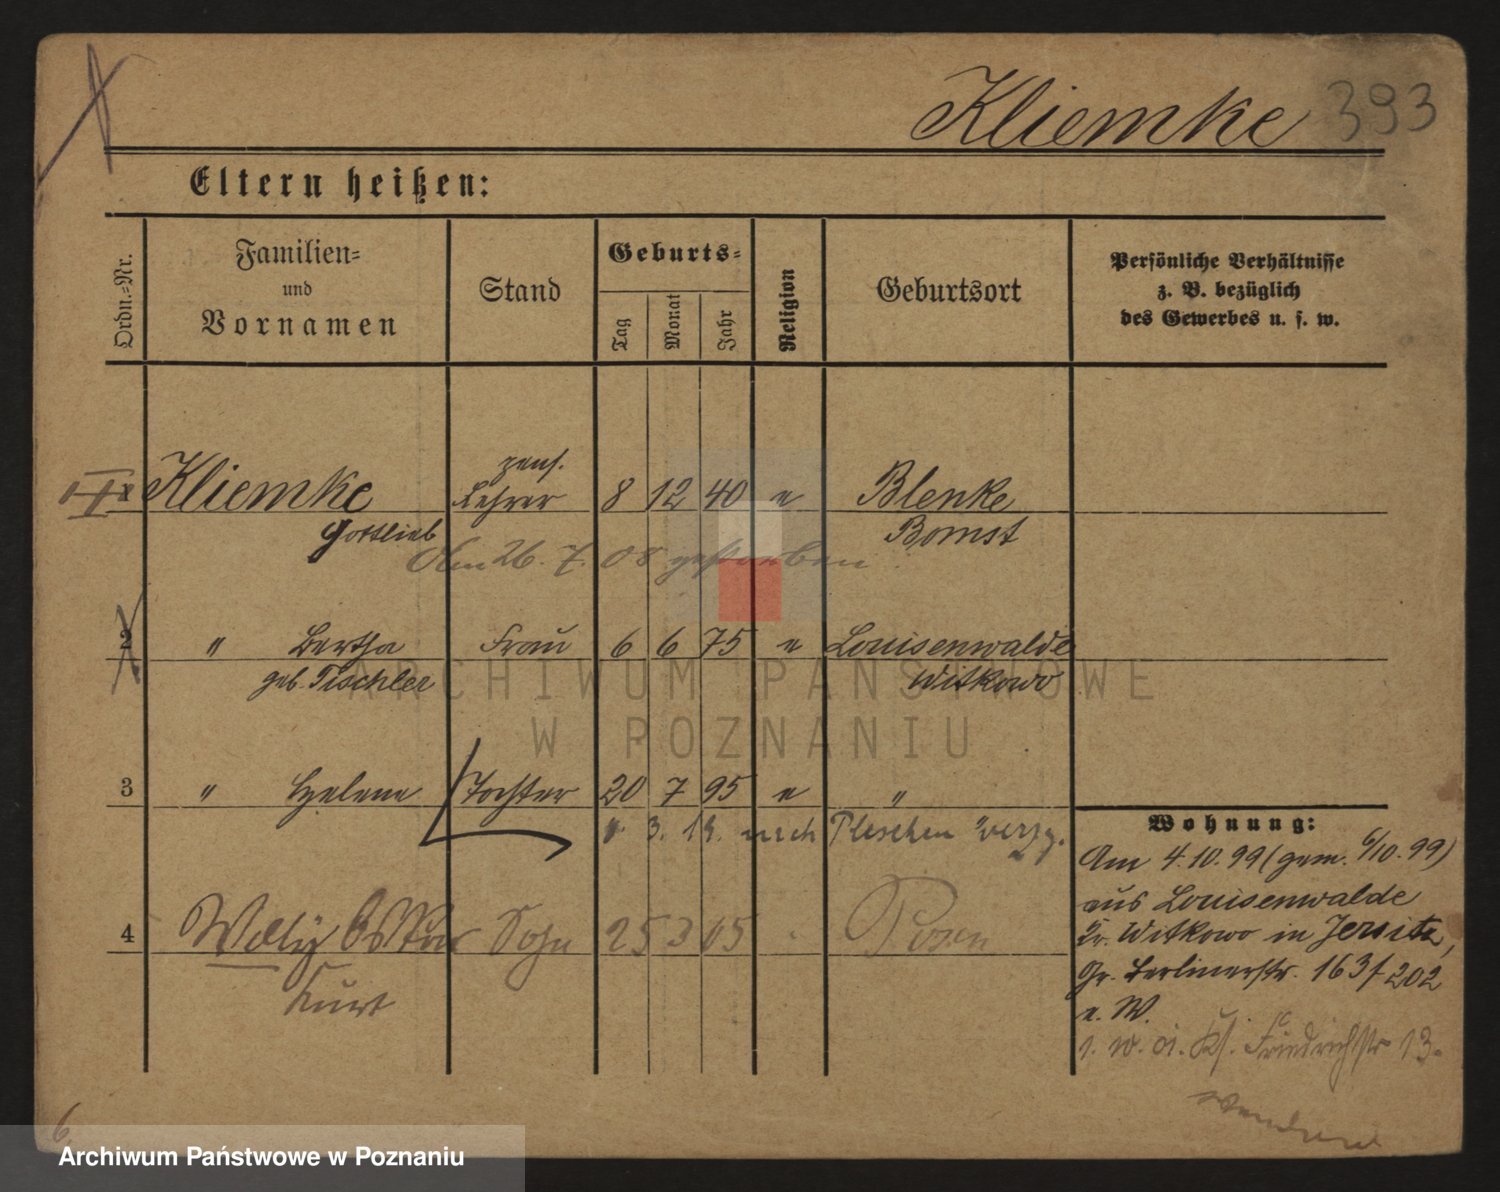 Kliemke 393
Eltern heißen:
Ordn.-Nr.
Familien-
und
Vornamen
Stand
Geburts-
Tag
Monat
Jahr
Religion
Geburtsort
Persönliche Verhältnisse
z. B. bezüglich
des Gewerbes u. s. w.
pens.
1 Kliemke Lehrer 8 12 40 e Blenke
Gottlieb Bomst
Am 26. 7. 08 gestorben
2 " Bertha Frau 6 6 75 e Louisenwalde
geb. Tischler Witkowo
3 " Helene Tochter 20 7 95 e "
3. 19. nach Pleschen verzg.
4 Willy Oskar Sohn 25 3 05 Posen
Kurt
Wohnung:
Am 4.10.99 (gem. 6/10.99)
aus Louisenwalde
Kr. Witkowo in Jersitz,
Gr. Berlinerstr. 163/202
e. W.
Friedrichstr 13.
wenden
6
ARCHIWUM PAŃSTWOWE
W POZNANIU
Archiwum Państwowe w Poznaniu